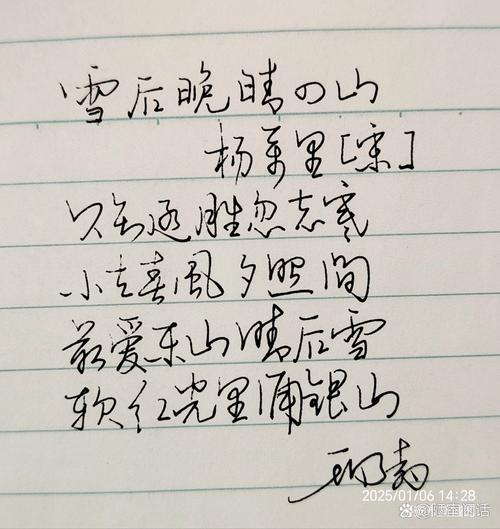 雪后晚晴四山
杨万里[宋]
只知逐胜忽忘寒
小立春風夕照间
最爱东山晴后雪
软红光里涌银山
2025/01/06 14:28